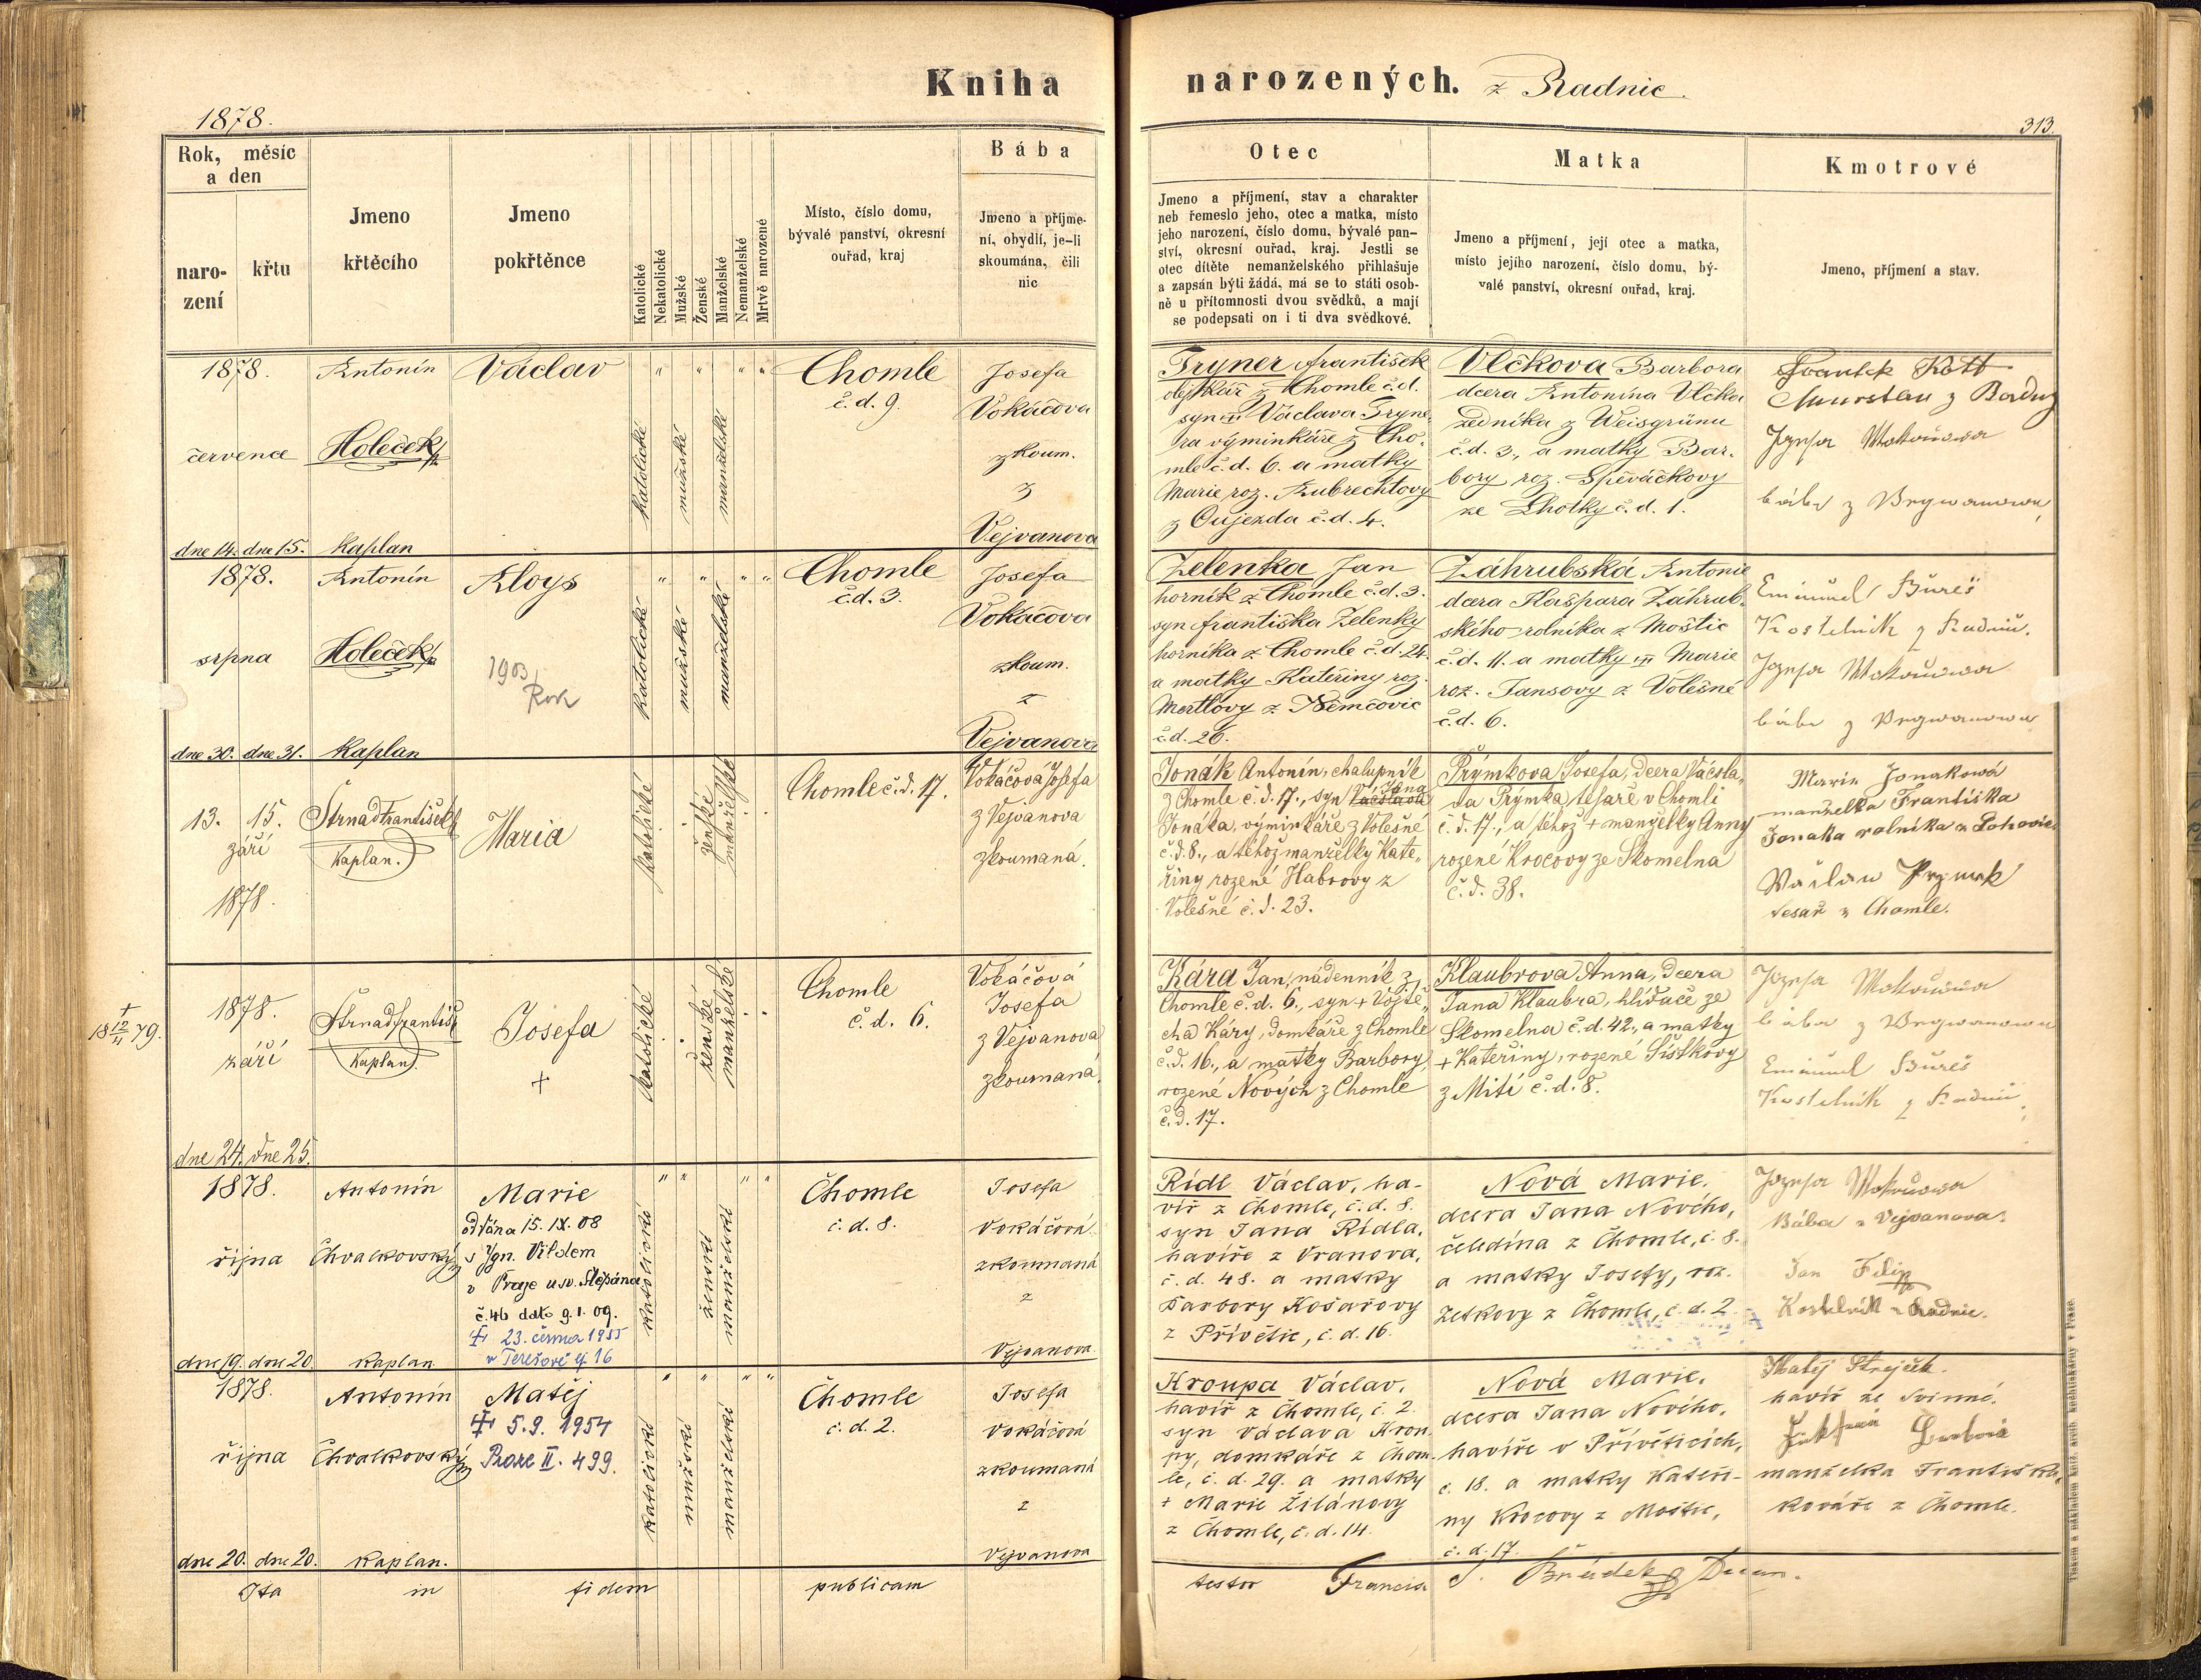 Kniha narozených. z Radnic
1878.
313.
Rok, měsíc
a den
naro-
zení
křtu
Jmeno
křtěcího
Jmeno
pokřtěnce
Katolické
Nekatolické
Mužské
Ženské
Manželské
Nemanželské
Mrtvě narozené
Místo, číslo domu,
bývalé panství, okresní
ouřad, kraj
Bába
Jmeno a příjme-
ní, obydlí, je-li
skoumána, čili
nic
Otec
Jmeno a příjmení, stav a charakter
neb řemeslo jeho, otec a matka, místo
jeho narození, číslo domu, bývalé pan-
ství, okresní ouřad, kraj. Jestli se
otec dítěte nemanželského přihlašuje
a zapsán býti žádá, má se to státi osob-
ně u přítomnosti dvou svědků, a mají
se podepsati on i ti dva svědkové.
Matka
Jmeno a příjmení, její otec a matka,
místo jejího narození, číslo domu, bý-
valé panství, okresní ouřad, kraj.
Kmotrové
Jmeno, příjmení a stav.
1878.
července
dne 14. dne 15.
Antonín
Holeček
kaplan
Václav
" " " "
katolické
mužské
manželské
Chomle
č. d. 9.
Josefa
Vokáčova
zkoum.
z
Vejvanova
Tryner František
olejkář z Chomle č.d.
syn Václava Tryne-
ra výminkáře z Cho-
mle č. d. 6. a matky
Marie roz. Kubrechtovy
z Oujezda č. d. 4.
Vlčkova Barbora
dcera Antonína Vlčka
zedníka z Weisgrünu
č.d. 3., a matky Bar-
bory roz. Spěváčkovy
ze Lhotky č. d. 1.
bába z
1878.
srpna
dne 30. dne 31.
Antonín
Holeček
kaplan
Aloys
1903
Rok
" " " "
katolické
mužské
manželské
Chomle
č.d. 3.
Josefa
Vokáčova
zkoum.
z
Vejvanova
Zelenka Jan
horník z Chomle č.d. 3.
syn Františka Zelenky
horníka z Chomle č.d. 24.
a matky Kateřiny roz.
Mertlovy z Němčovic
č.d. 26.
Záhrubská Antonie
dcera Kašpara Záhrub-
ského rolníka z Moštic
č.d. 11. a matky Marie
roz. Jansovy z Volešné
č. d. 6.
Emanuel Bureš
Kostelník z Radnic.
bába z
13. 15.
září
1878.
Strnad František
kaplan.
Maria
katolické
ženské
manželské
Chomle č. d. 17.
Vokáčová Josefa
z Vejvanova
zkoumaná.
Jonák Antonín, chalupník
z Chomle č. d. 17., syn Václava Jana
Jonáka, výminkáře z Volešné
č. d. 8., a téhož manželky Kate-
řiny rozené Habrovy z
Volešné č. d. 23.
Prýmkova Josefa, dcera Václa-
va Prýmka, tesaře v Chomli
č. d. 17., a téhož + manželky Anny
rozené Krocovy ze Skomelna
č. d. 38.
Marie Jonaková
manželka Františka
Jonaka rolníka z Lohovic
Wáclaw Prymek
tesař z Chomle.
+ 18 12/11 79.
1878.
září
dne 24. dne 25.
Strnad František
kaplan.
Josefa
+
katolické
ženské
manželské
Chomle
č. d. 6.
Vokáčová
Josefa
z Vejvanova
zkoumaná.
Kára Jan, nádenník z
Chomle č. d. 6., syn + Vojtě-
cha Káry, domkáře z Chomle
č. d. 16., a matky Barbory,
rozené Nových z Chomle
č. d. 17.
Klaubrova Anna, dcera
Jana Klaubra, hlídače ze
Skomelna č. d. 42., a matky
+ Kateřiny, rozené Šístkovy
z Mití č. d. 8.
bába z
Emanuel Bureš
Kostelník z Radnic
1878.
října
dne 19. dne 20.
Antonín
Chvalkovský
kaplan
Marie
oddána 15. IX. 08
s Ign. Vildem
v Praze u sv. Štěpána
č. 46 dato 9. 1. 09.
+ 23. června 1955
v Terešově čj. 16
" " " "
katolické
ženské
manželské
Chomle
č. d. 8.
Josefa
Vokáčová
zkoumaná
z
Vejvanova
Rídl Václav, ha-
víř z Chomle, č. d. 8.
syn Jana Rídla,
havíře z Vranova,
č. d. 48. a matky
Barbory Košařovy
z Přívětic, č. d. 16.
Nová Marie,
dcera Jana Nového,
čeledína z Chomle, č. 8.
a matky Josefy, roz.
Zetkovy z Chomle, č. d. 2
Bába z Vejvanova.
Jan Filip
Kostelník z Radnic.
1878.
října
dne 20. dne 20.
Antonín
Chvalkovský
kaplan.
Matěj
+ 5. 9. 1954
Praze II. 499.
" " " "
katolické
mužské
manželské
Chomle
č. d. 2.
Josefa
Vokáčová
zkoumaná
z
Vejvanova
Kroupa Václav,
havíř z Chomle, č. 2.
syn Václava Krou-
py, domkáře z Chom-
le, č. d. 29. a matky
+ Marie Žilánovy
z Chomle, č. d. 14.
Nová Marie,
dcera Jana Nového,
havíře v Přívěticích,
č. 18. a matky Kateři-
ny Krocovy z Moštic,
č. d. 17.
Matěj Strejček
havíř ze Svinné.
manželka Františka,
kováře z Chomle.
Ita in fidem publicam
testor Francisc. S. Brádek Decan.